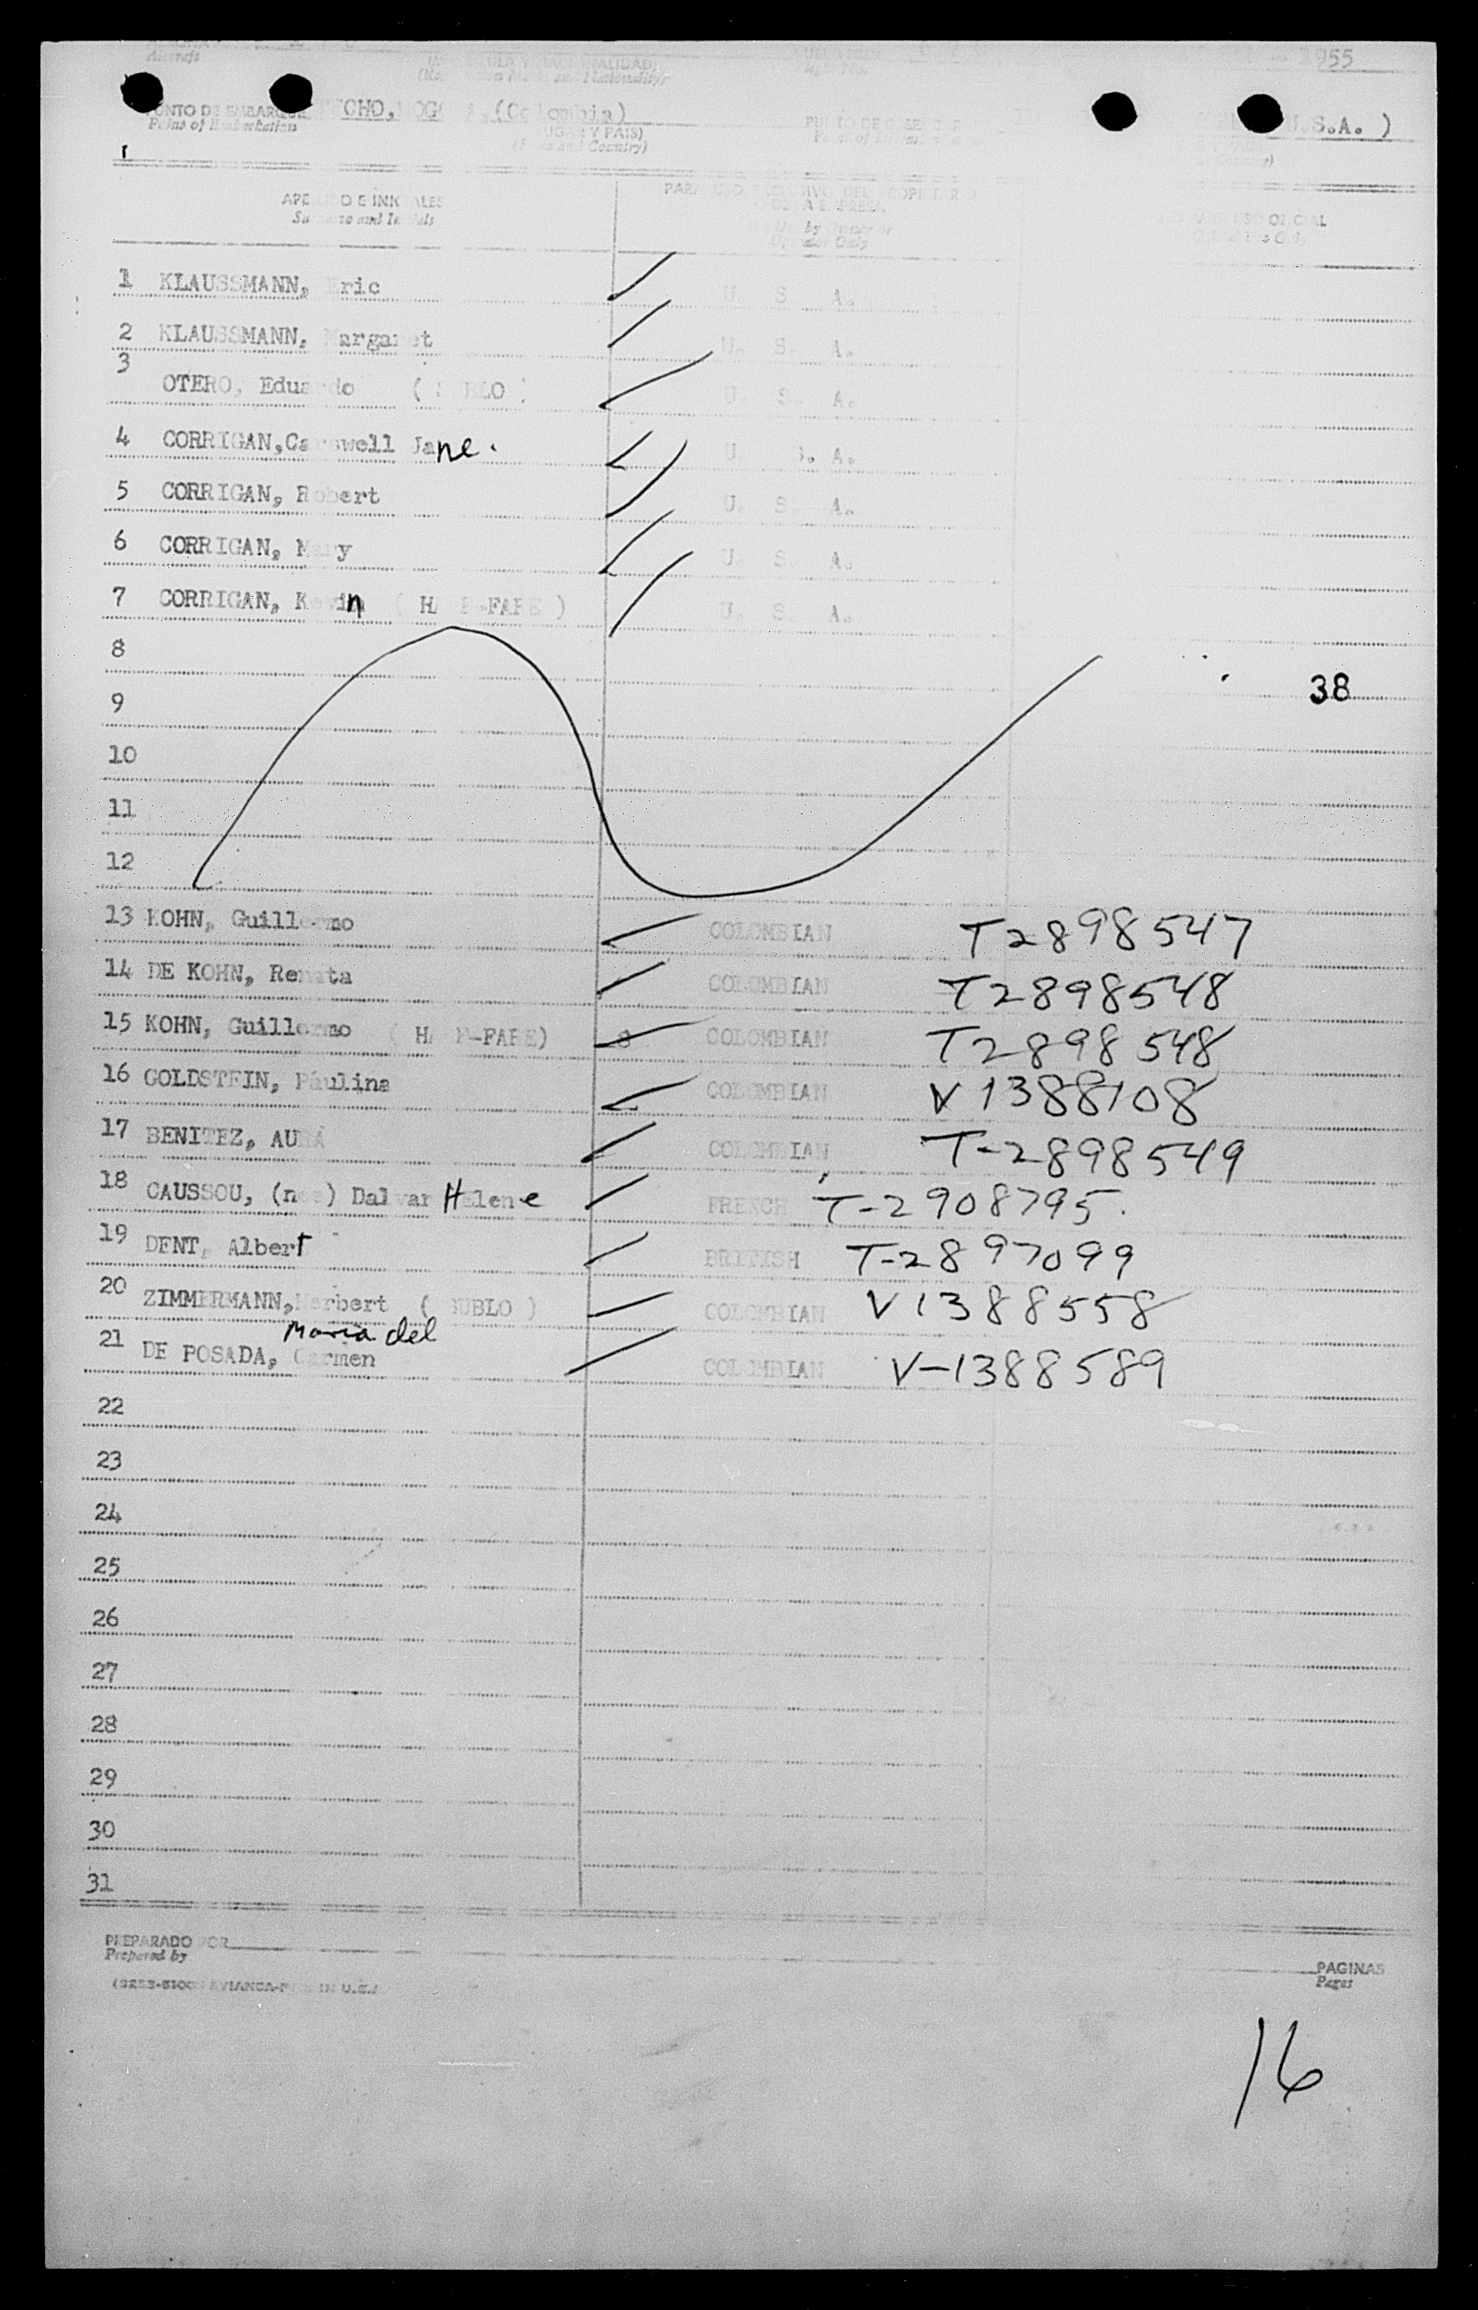 Aircraft
1955
PUNTO DE EMBARQUE TECHO, BOGOTA, (Colombia)
Point of Embarkation
(LUGAR Y PAIS)
(Place and Country)
U.S.A. )
APELLIDO E INICIALES
Surname and Initials
PARA USO EXCLUSIVO DEL PROPIETARIO
DE LA EMPRESA
Use by Owner or
Operator Only
USO OFICIAL
1 KLAUSSMANN, Eric U. S. A.
2 KLAUSSMANN, Margaret U. S. A.
3 OTERO, Eduardo ( SUBLO ) U. S. A.
4 CORRIGAN, Carswell Jane. U. S. A.
5 CORRIGAN, Robert U. S. A.
6 CORRIGAN, Mary U. S. A.
7 CORRIGAN, Kevin ( HALF-FARE ) U. S. A.
8
9 38
10
11
12
13 KOHN, Guillermo COLOMBIAN T2898547
14 DE KOHN, Renata COLOMBIAN T2898548
15 KOHN, Guillermo ( HALF-FARE) 8 COLOMBIAN T2898548
16 GOLDSTEIN, Paulina COLOMBIAN V1388108
17 BENITEZ, AURA COLOMBIAN T-2898549
18 CAUSSOU, (nee) Dalvar Helene FRENCH T-2908795.
19 DENT, Albert BRITISH T-2897099
20 ZIMMERMANN, Herbert ( SUBLO ) COLOMBIAN V1388558
Maria del
21 DE POSADA, Carmen COLOMBIAN V-1388589
22
23
24
25
26
27
28
29
30
31
PREPARADO POR
Prepared by
PAGINAS
Pages
16